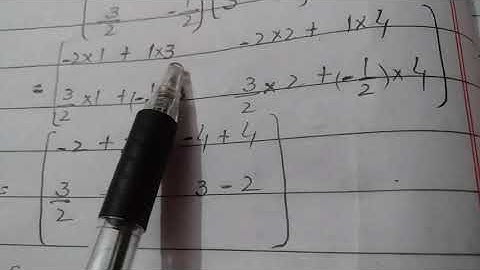 3/2 -1/2) (3
-2×1 + 1×3 -2×2 + 1×4
= 3/2 ×1 +(-1 3/2 ×2 +(-1/2)×4
-2 + -4 + 4
= 3/2 3 - 2